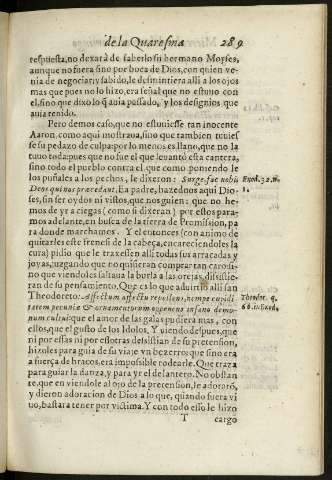 de la Quaresma 289
respuesta, no dexara de saberlo su hermano Moyses,
aunque no fuera sino por boca de Dios, con quien ve-
nia de negociar; y sabido, le desmintiera alli a los ojos
mas que pues no lo hizo, era señal que no estuuo con
el, sino que dixo lo q̃ auia passado, y los designios que
auia tenido.
Pero demos caso, que no estuuiesse tan inocente
Aaron, como aqui mostraua, sino que tambien tuuies
se su pedazo de culpa: por lo menos es llano, que no la
tuuo toda: pues que no fue el que leuantò esta cantera,
sino todo el pueblo contra el que como poniendo le
los puñales a los pechos, le dixeron: Surge, fac nobis
Deos qui nos præcedant. Ea padre, hazednos aqui Dio-
ses, sin ser oydos ni vistos, que nos guien: que no he-
mos de yr a ciegas (como si dixeran) por estos para-
mos adelante, en busca de la tierra de Promission, pa
ra donde marchamos. Y entonces (con animo de
quitarles este frenesi de la cabeça, encareciendoles la
cura) pidio que le traxessen alli todas sus arracadas y
joyas, juzgando que no quisieran comprar tan caro: si-
no que viendo les saltaua la burla a las orejas, desistie-
ran de su pensamiento. Que es lo que aduirtio alli san
Theodoreto: Affectum affectu repellens, nempe cupidi
tatem pecuniæ & ornamentorum opponens insano demo-
num cultui: que el amor de las galas pudiera mas, con
ellos, que el gusto de los Idolos. Y viendo despues, que
ni por essas ni por essotras desistian de su pretension,
hizoles para guia de su viaje vn bezerro: que sino era
a fuerça de braços, era impossible rodearle. Que traza
para guiar la dança, y para yr el delantero. No obstan
te, que en viendole al ojo de la pretension, le adorarõ,
y dieron adoracion de Dios a lo que, quando fuera vi
uo, bastara tener por victima. Y con todo esso le hizo
T cargo
Exod. 32. n.
1.
Theodor. q.
66. in Exod.